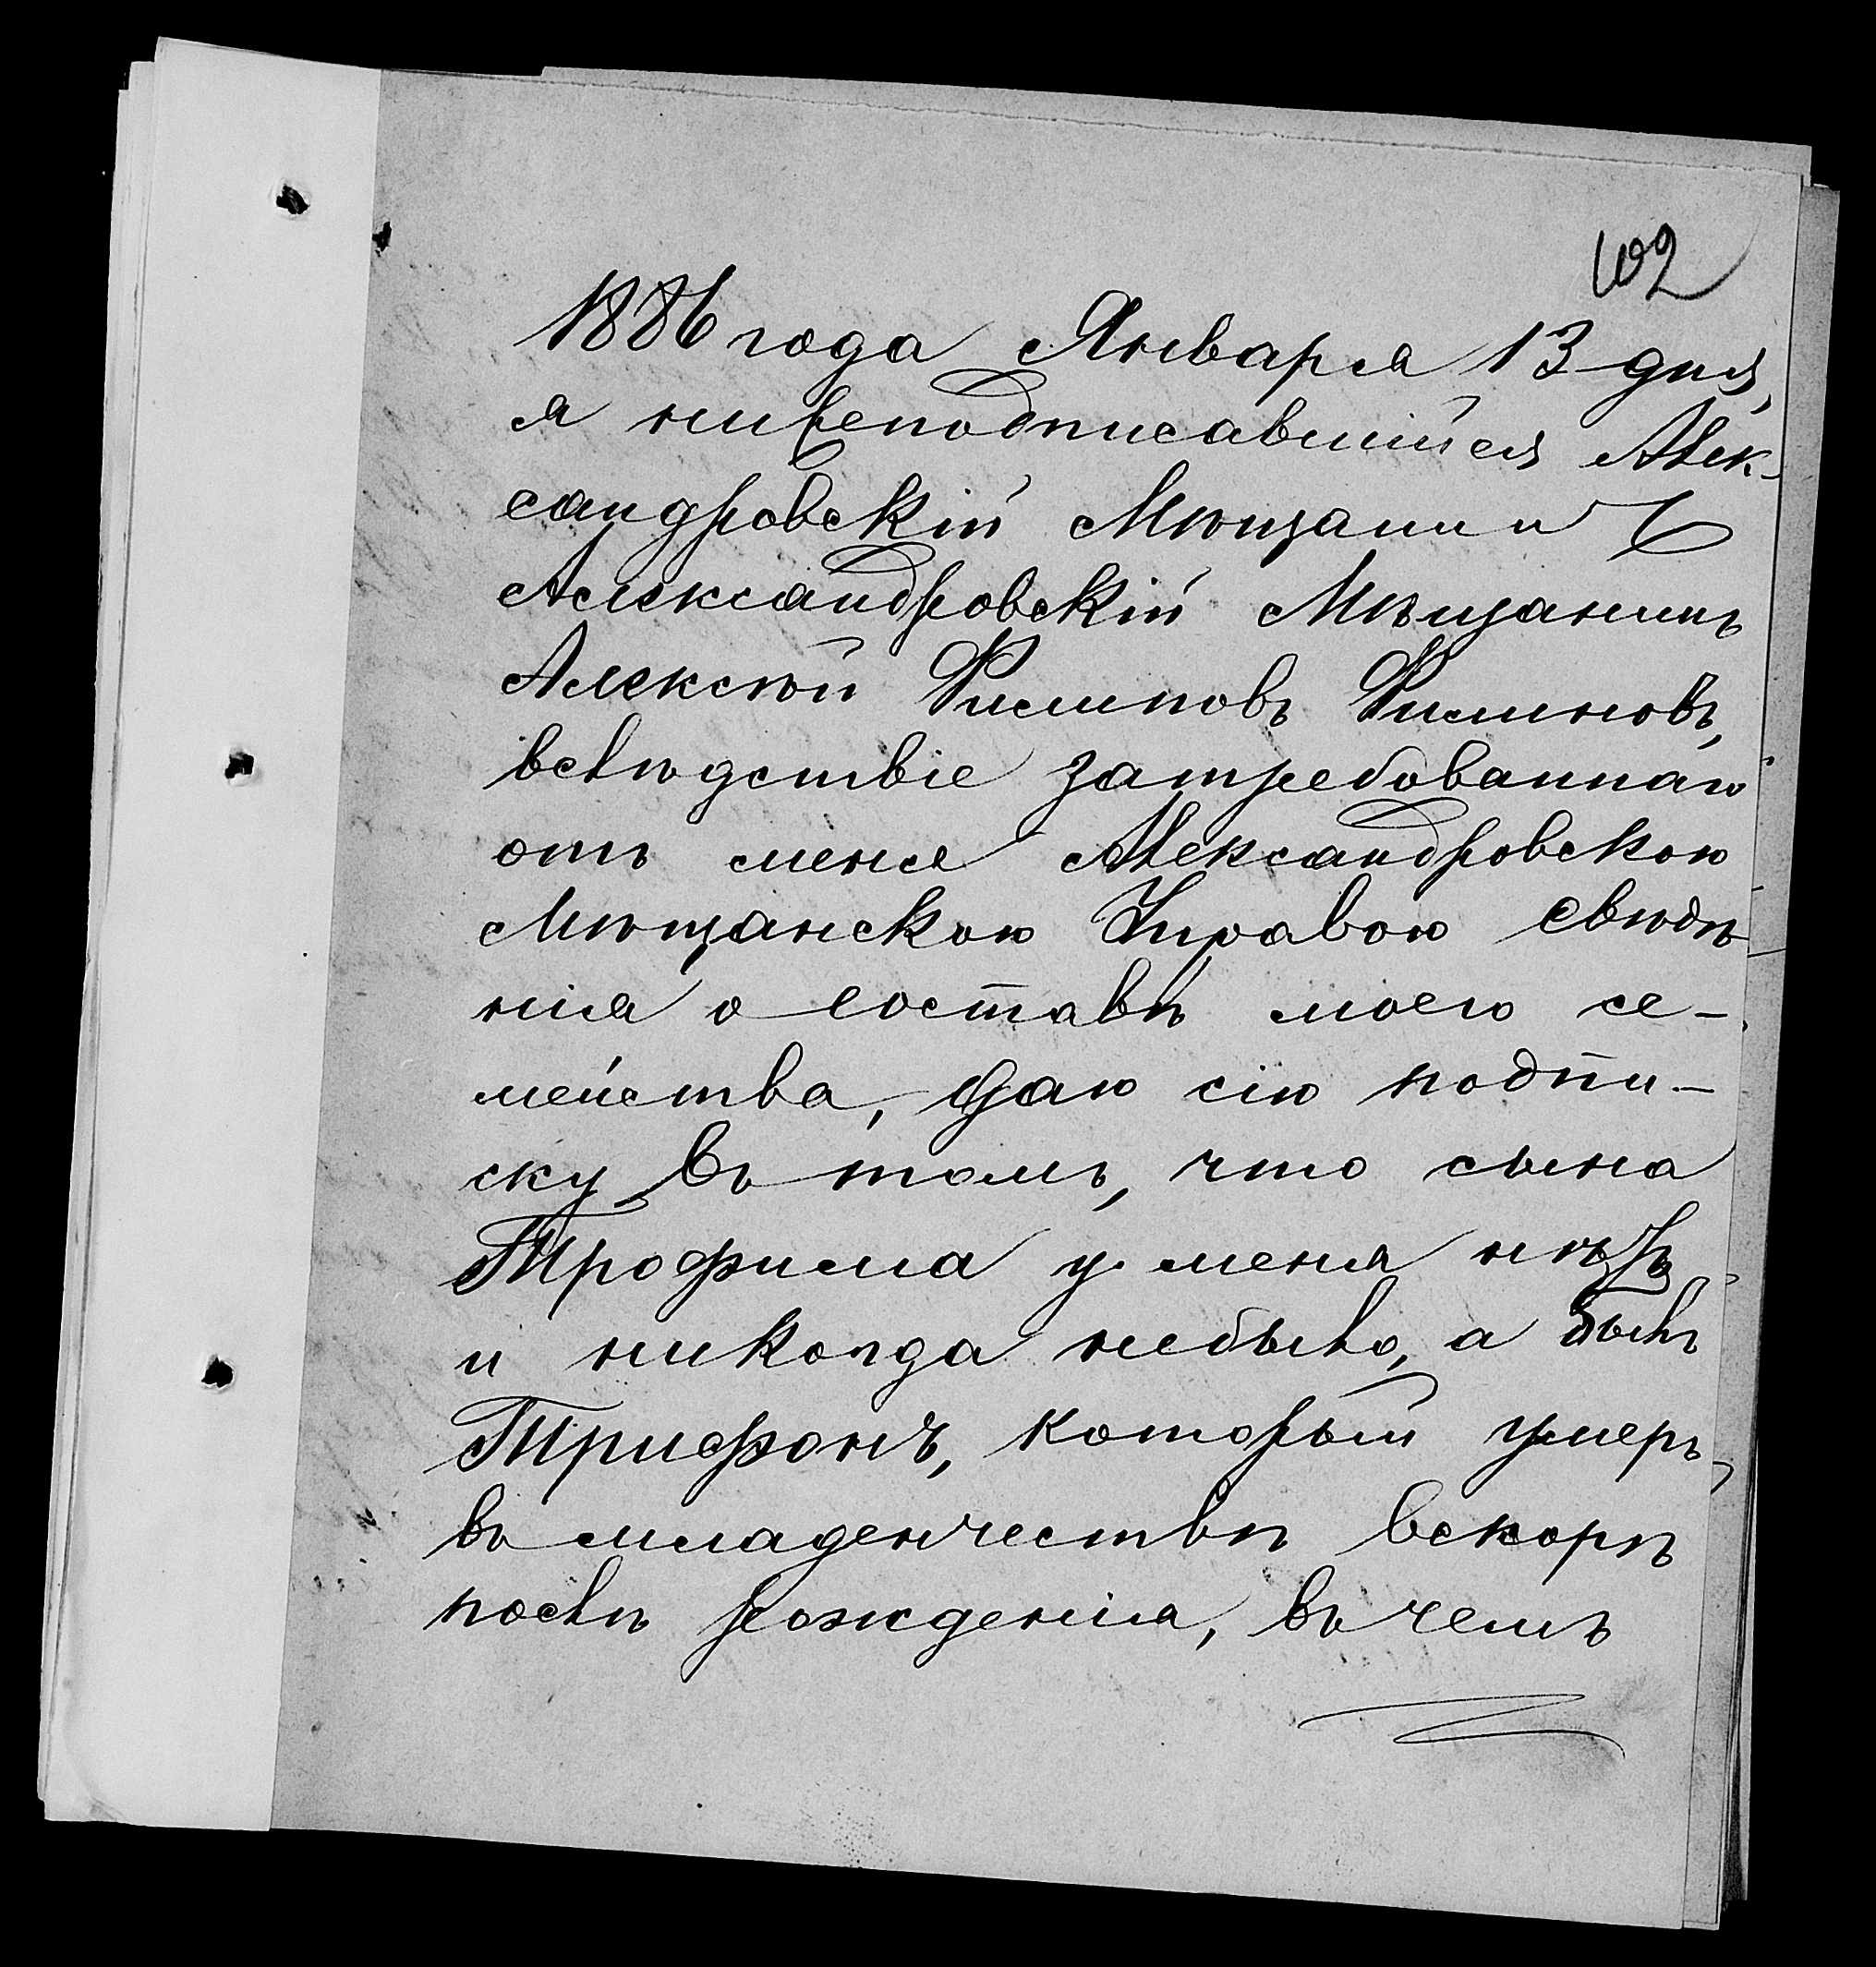 102
1886 года Января 13 дня,
я нижеподписавшийся Алек-
сандровскій Мѣщанин
Александровскій Мѣщанинъ
Алексѣй Филиповъ Филиновъ,
вслѣдствіе затребованнаго
отъ меня Александровскою
Мѣщанскою Управою свѣдѣ
нія о составѣ моего се-
мейства, даю сію подпи-
ску въ томъ, что сына
Трофима у меня нѣтъ
и никогда небыло, а былъ
Трифонъ, который умеръ,
въ младенчествѣ вскорѣ
послѣ рожденія, въ чемъ